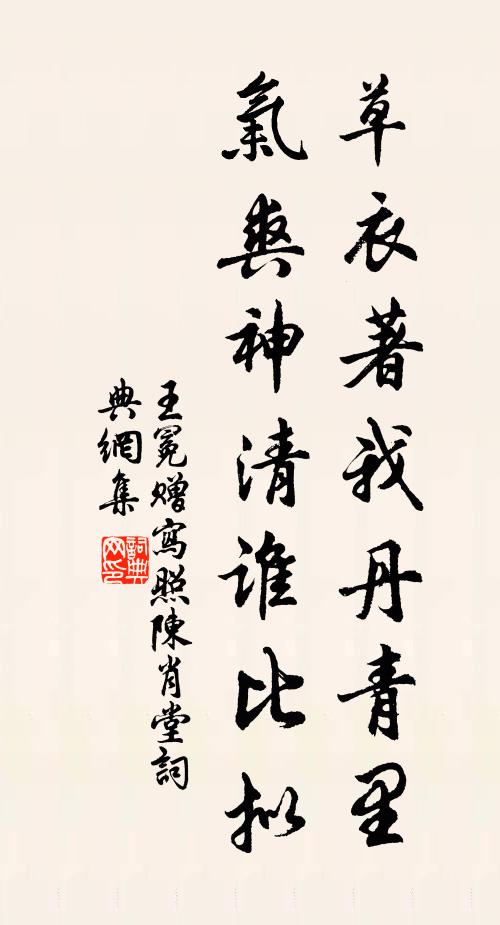 草衣著我丹青里
氣爽神清誰比拟
王冕赠寫照陳肖堂詞
典網集
詞典
网印